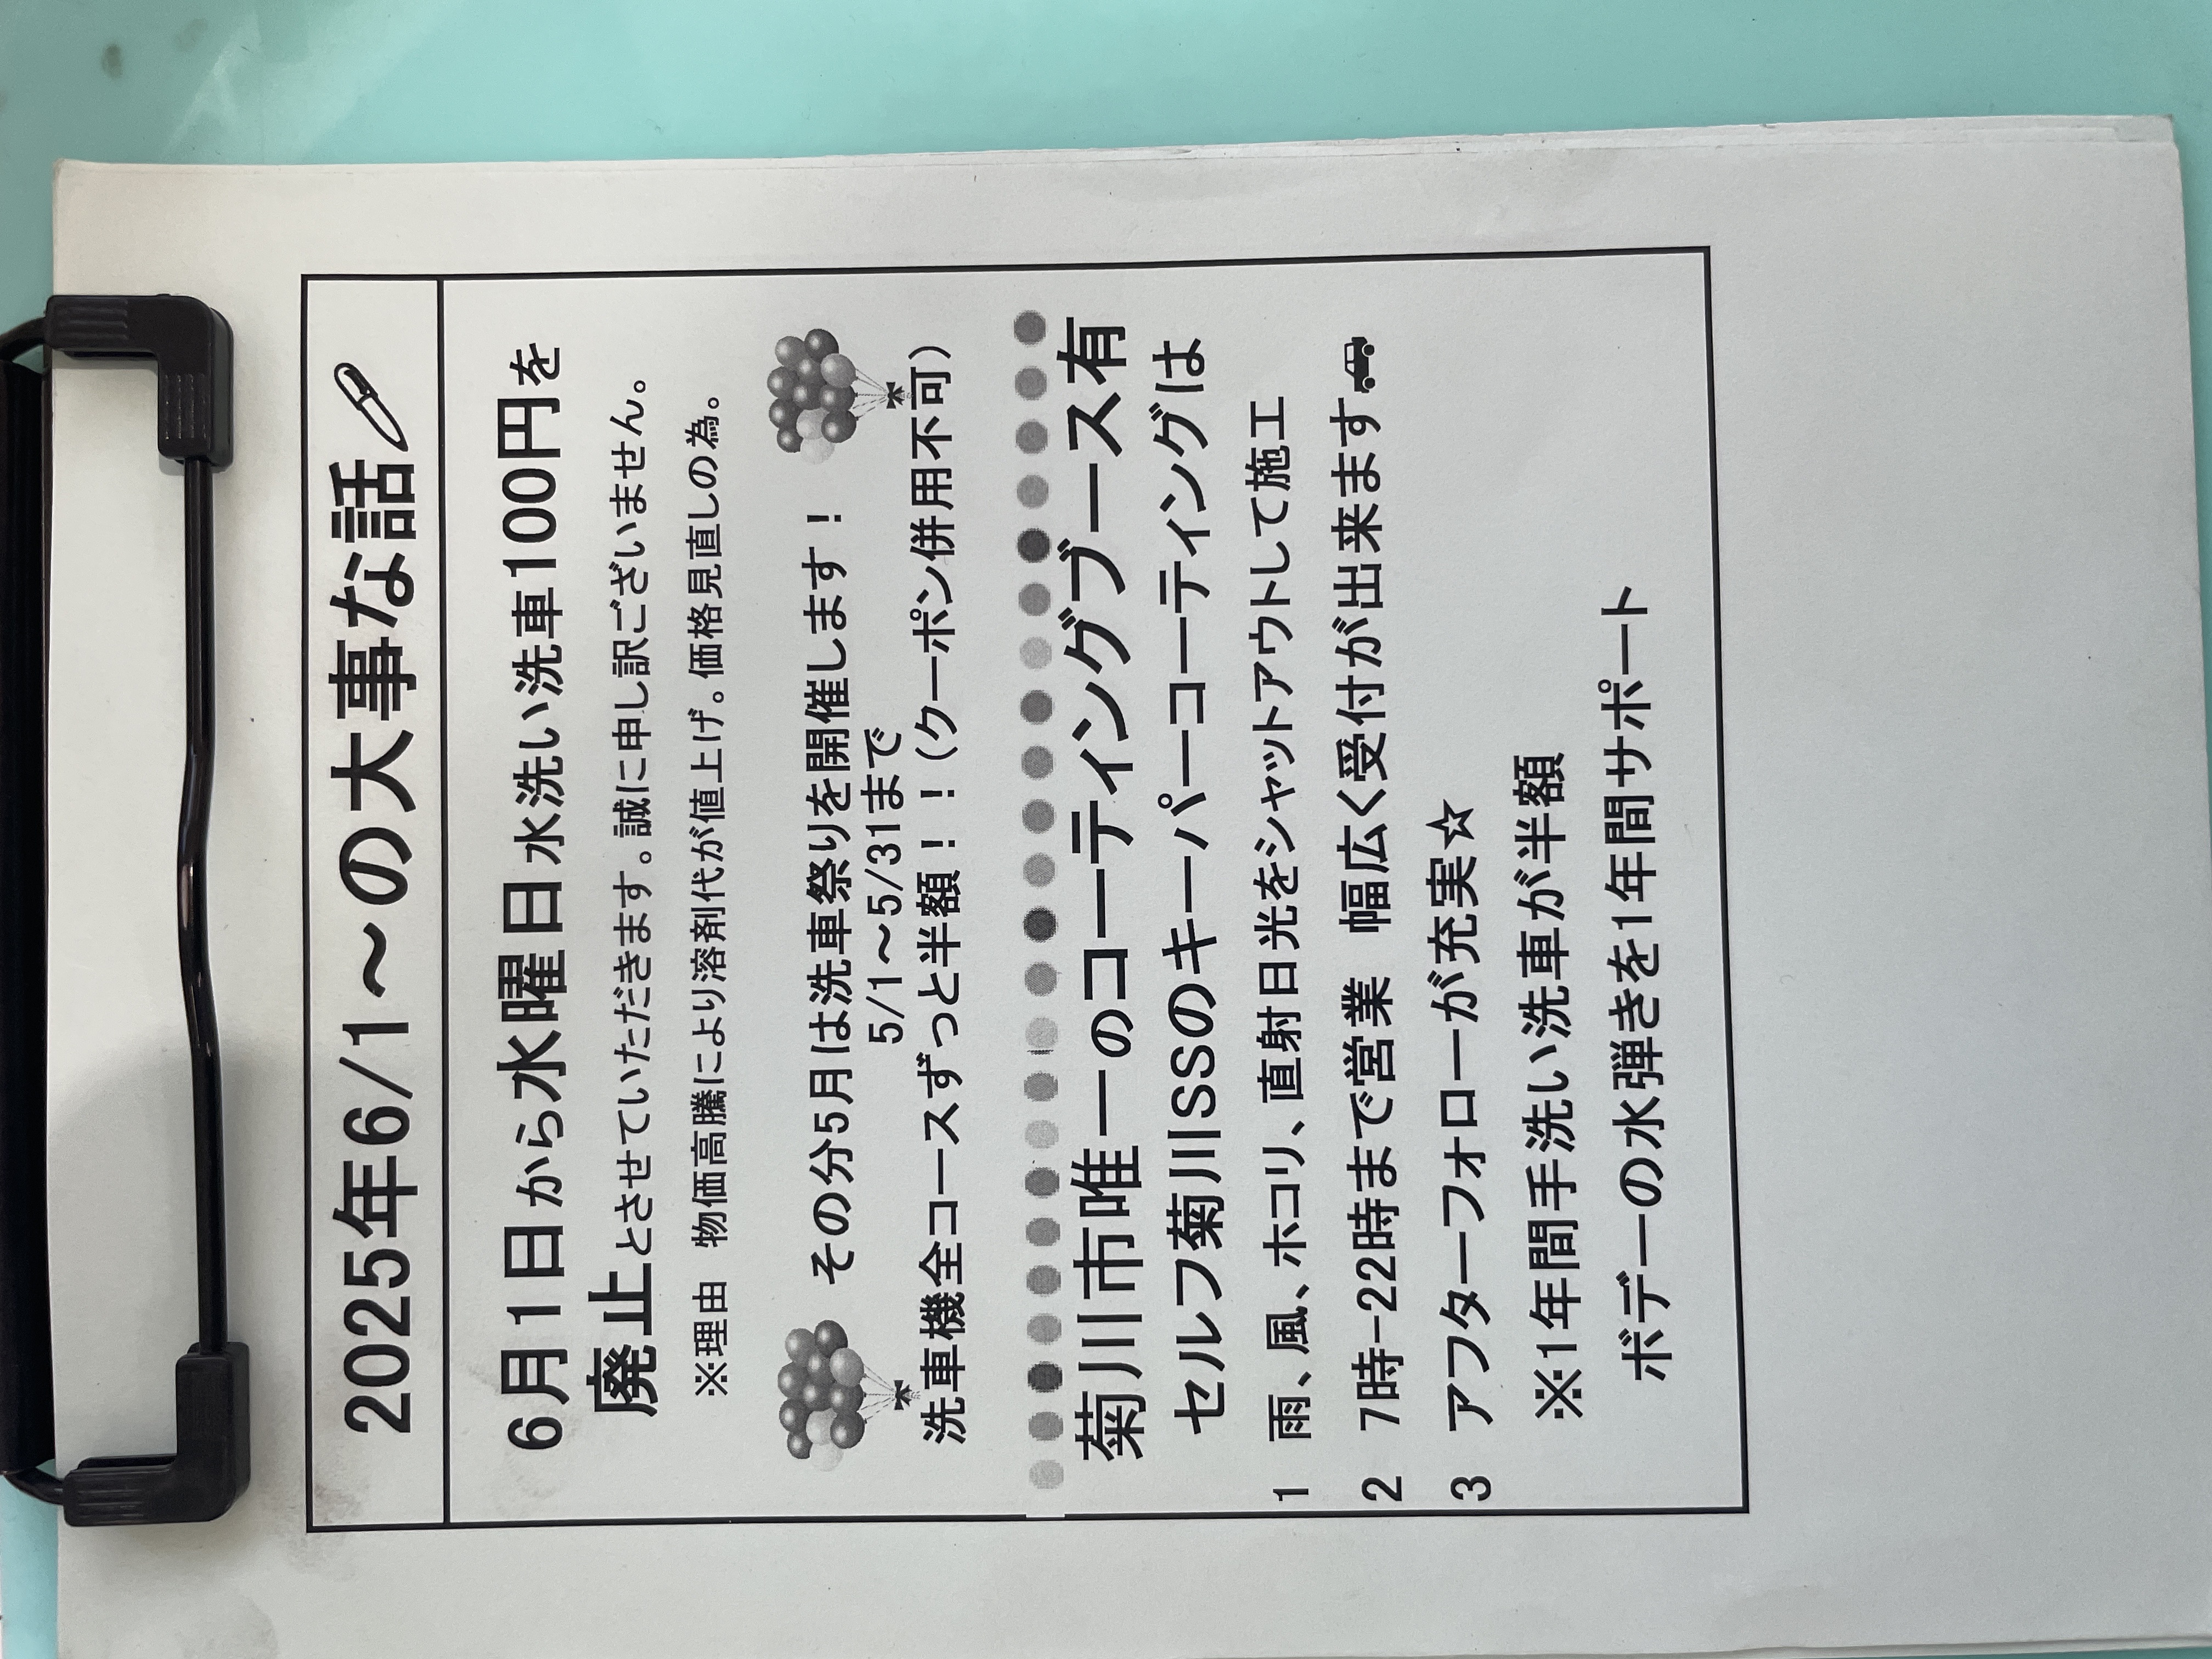 2025年6/1～の大事な話
6月1日から水曜日水洗い洗車100円を
廃止とさせていただきます。誠に申し訳ございません。
※理由 物価高騰により溶剤代が値上げ。価格見直しの為。
その分5月は洗車祭りを開催します！
5/1～5/31まで
洗車機全コースずっと半額！！（クーポン併用不可）
菊川市唯一のコーティングブース有
セルフ菊川SSのキーパーコーティングは
1 雨、風、ホコリ、直射日光をシャットアウトして施工
2 7時-22時まで営業 幅広く受付が出来ます
3 アフターフォローが充実☆
※1年間手洗い洗車が半額
ボデーの水弾きを1年間サポート